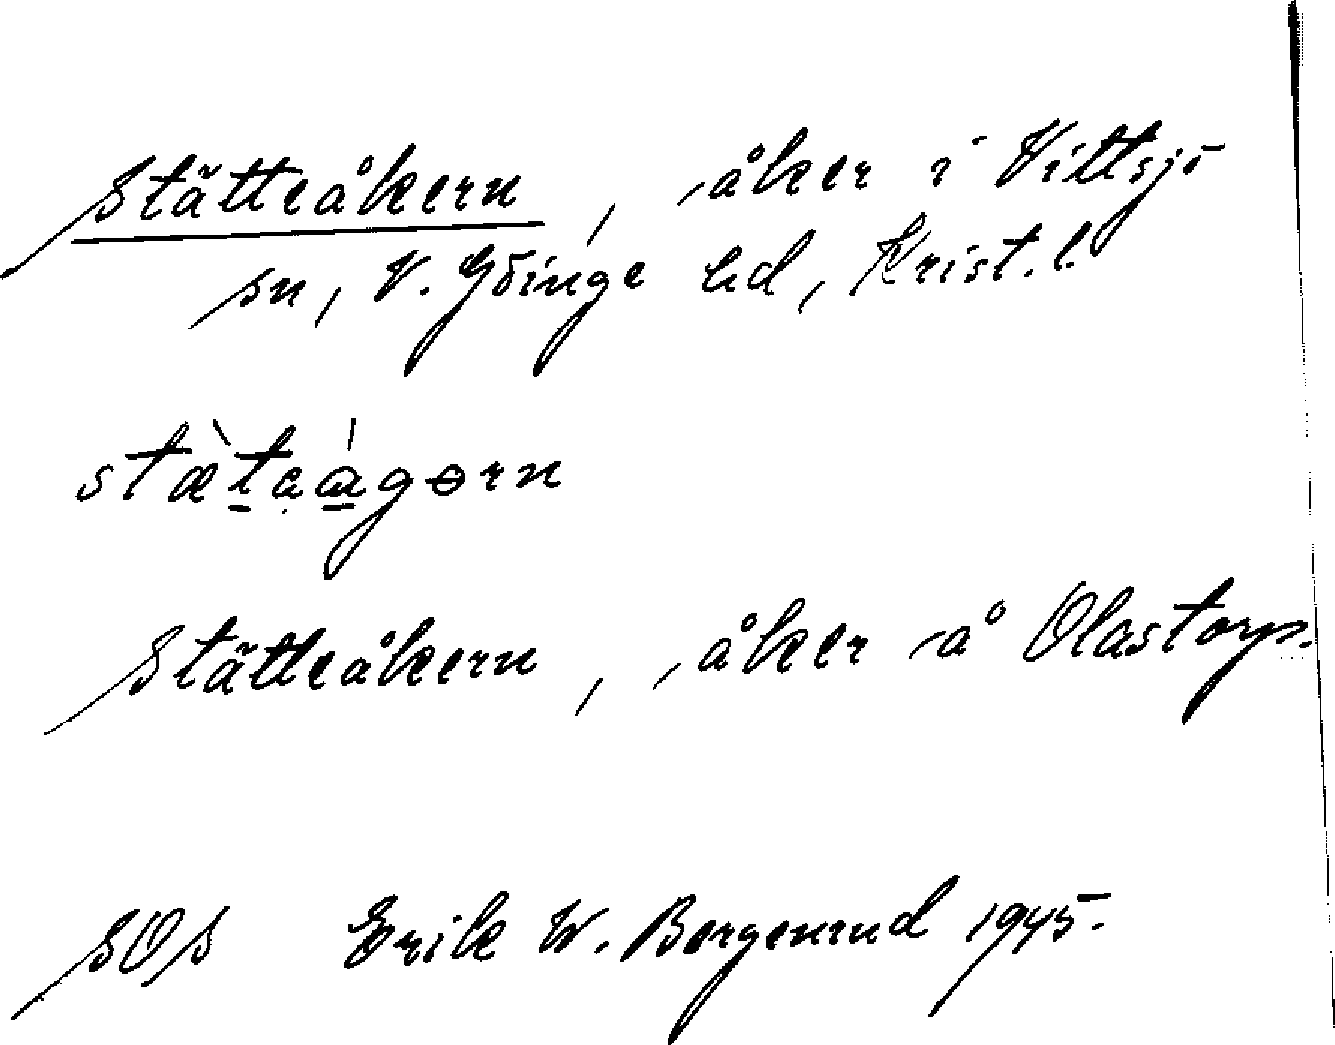 Stätteåkern, åker i Vittsjö
sn, V. Göinge hd, Krist. l.
stæ̀ta̤ágɵrn
Stätteåkern, åker å Olastorp.
SOS Erik W. Borgenrud 1945.